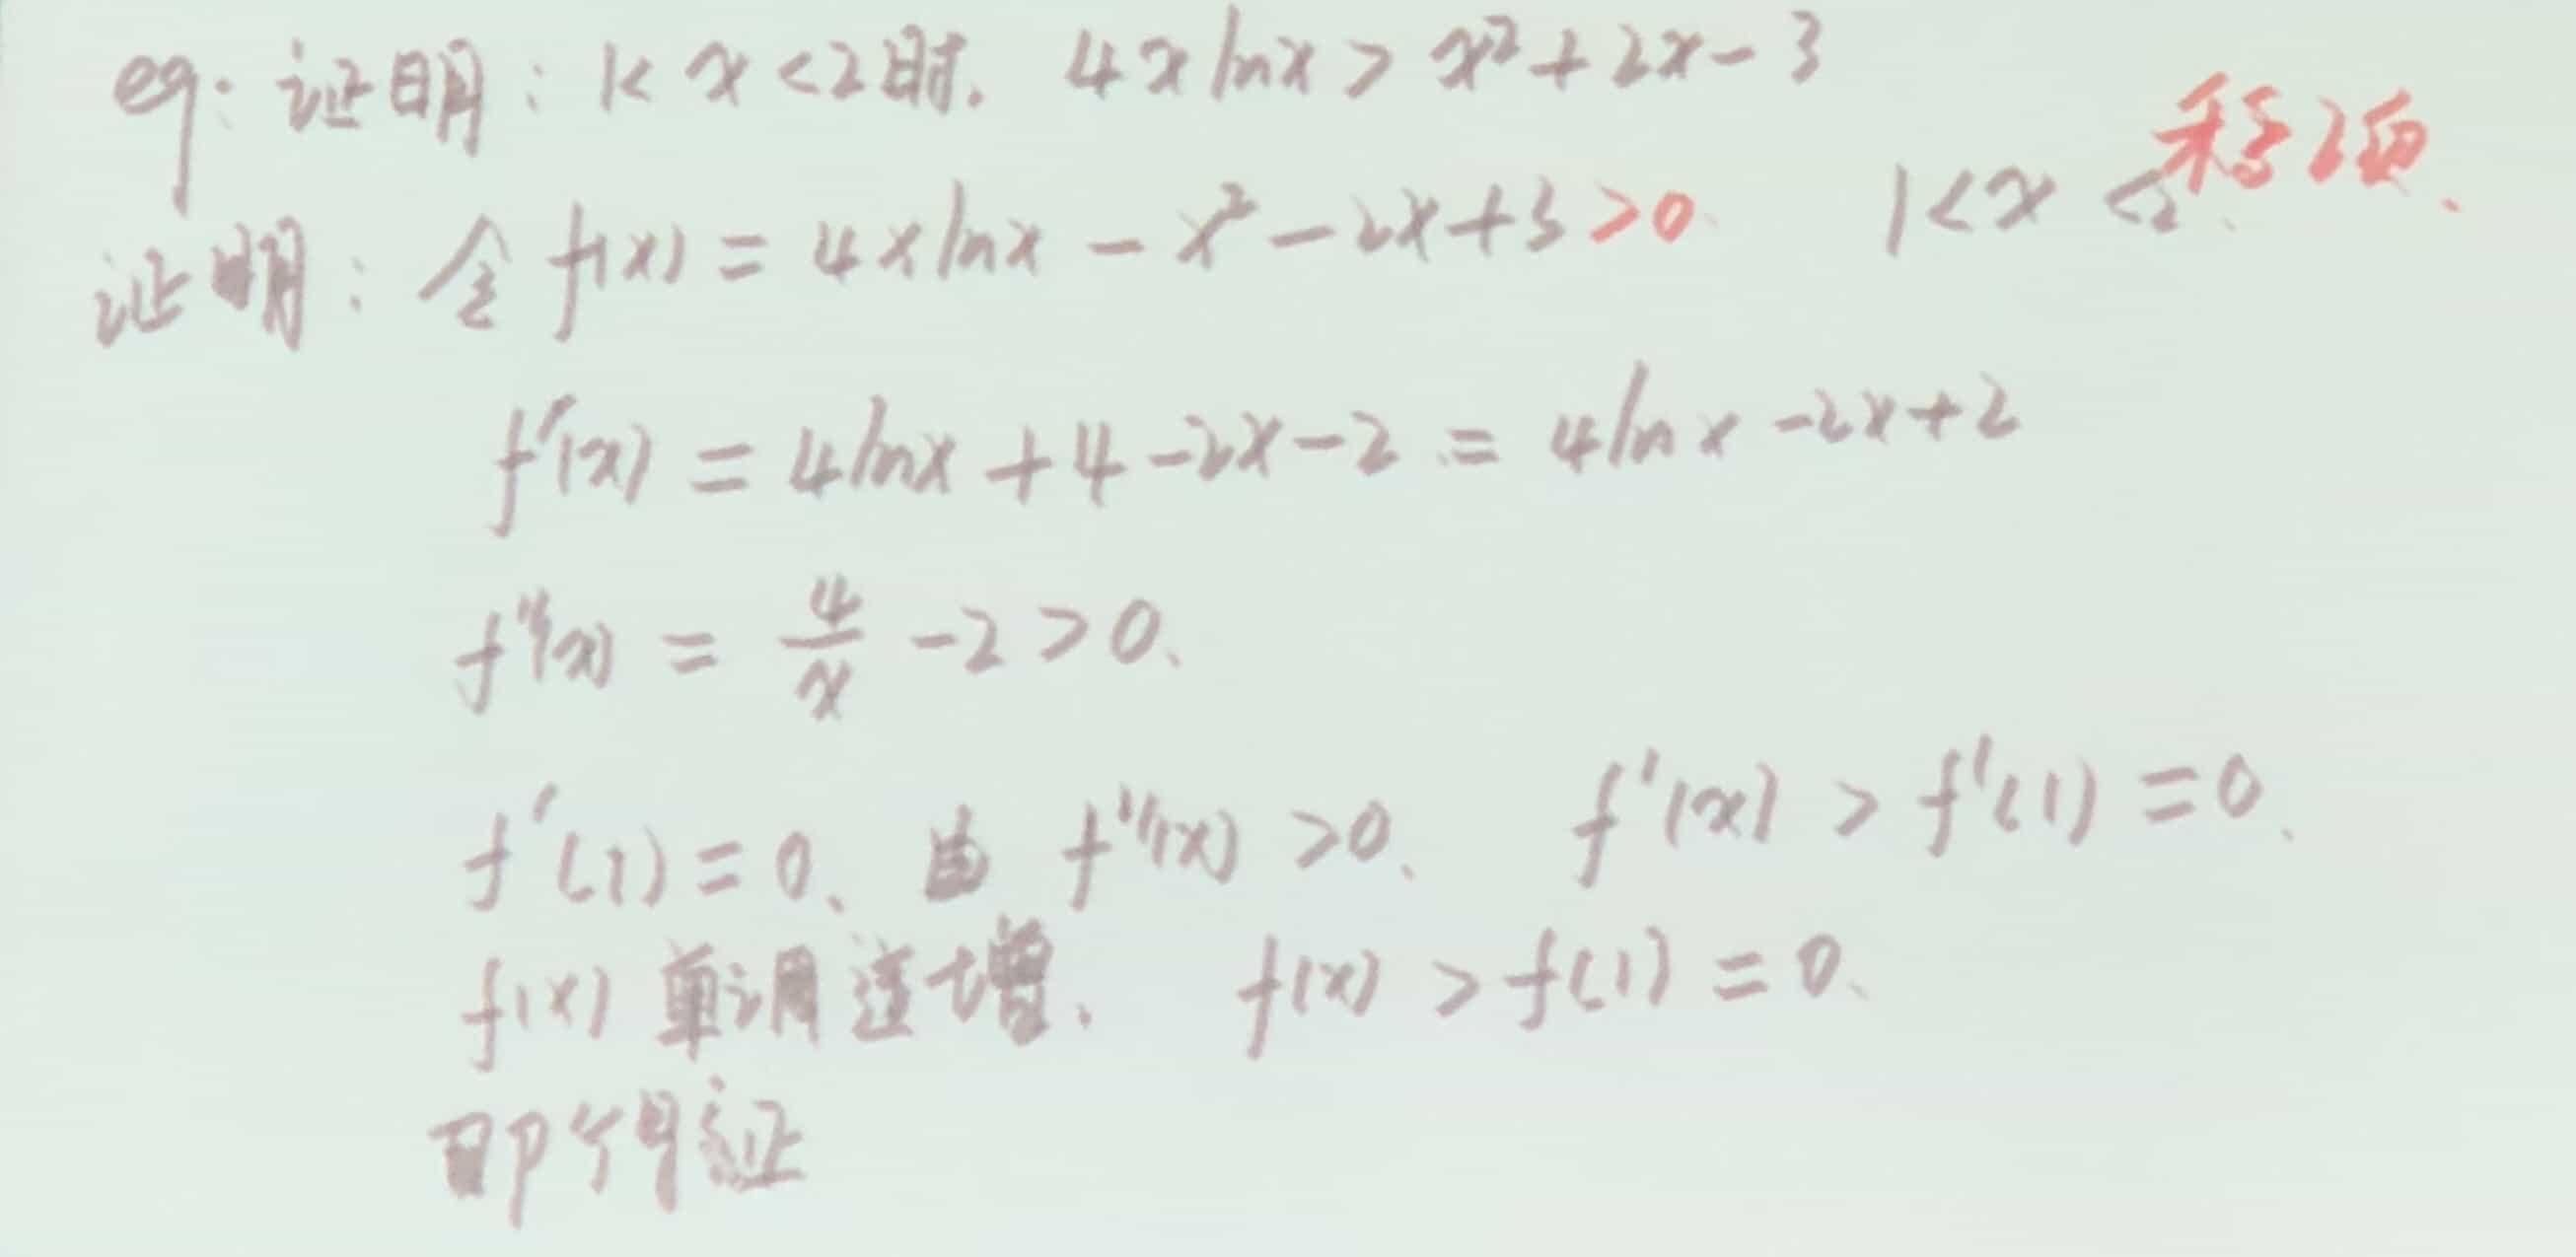 eg. 证明: 1< x <2时. 4x lnx > x² + 2x - 3
移项.
证明: 令 f(x) = 4x lnx - x² - 2x + 3 >0. 1 < x < 2.
f'(x) = 4lnx + 4 - 2x - 2 = 4lnx - 2x + 2
f''(x) = 4/x - 2 > 0.
f'(1) = 0. 由 f''(x) > 0. f'(x) > f'(1) = 0.
f(x) 单调递增. f(x) > f(1) = 0.
即得证